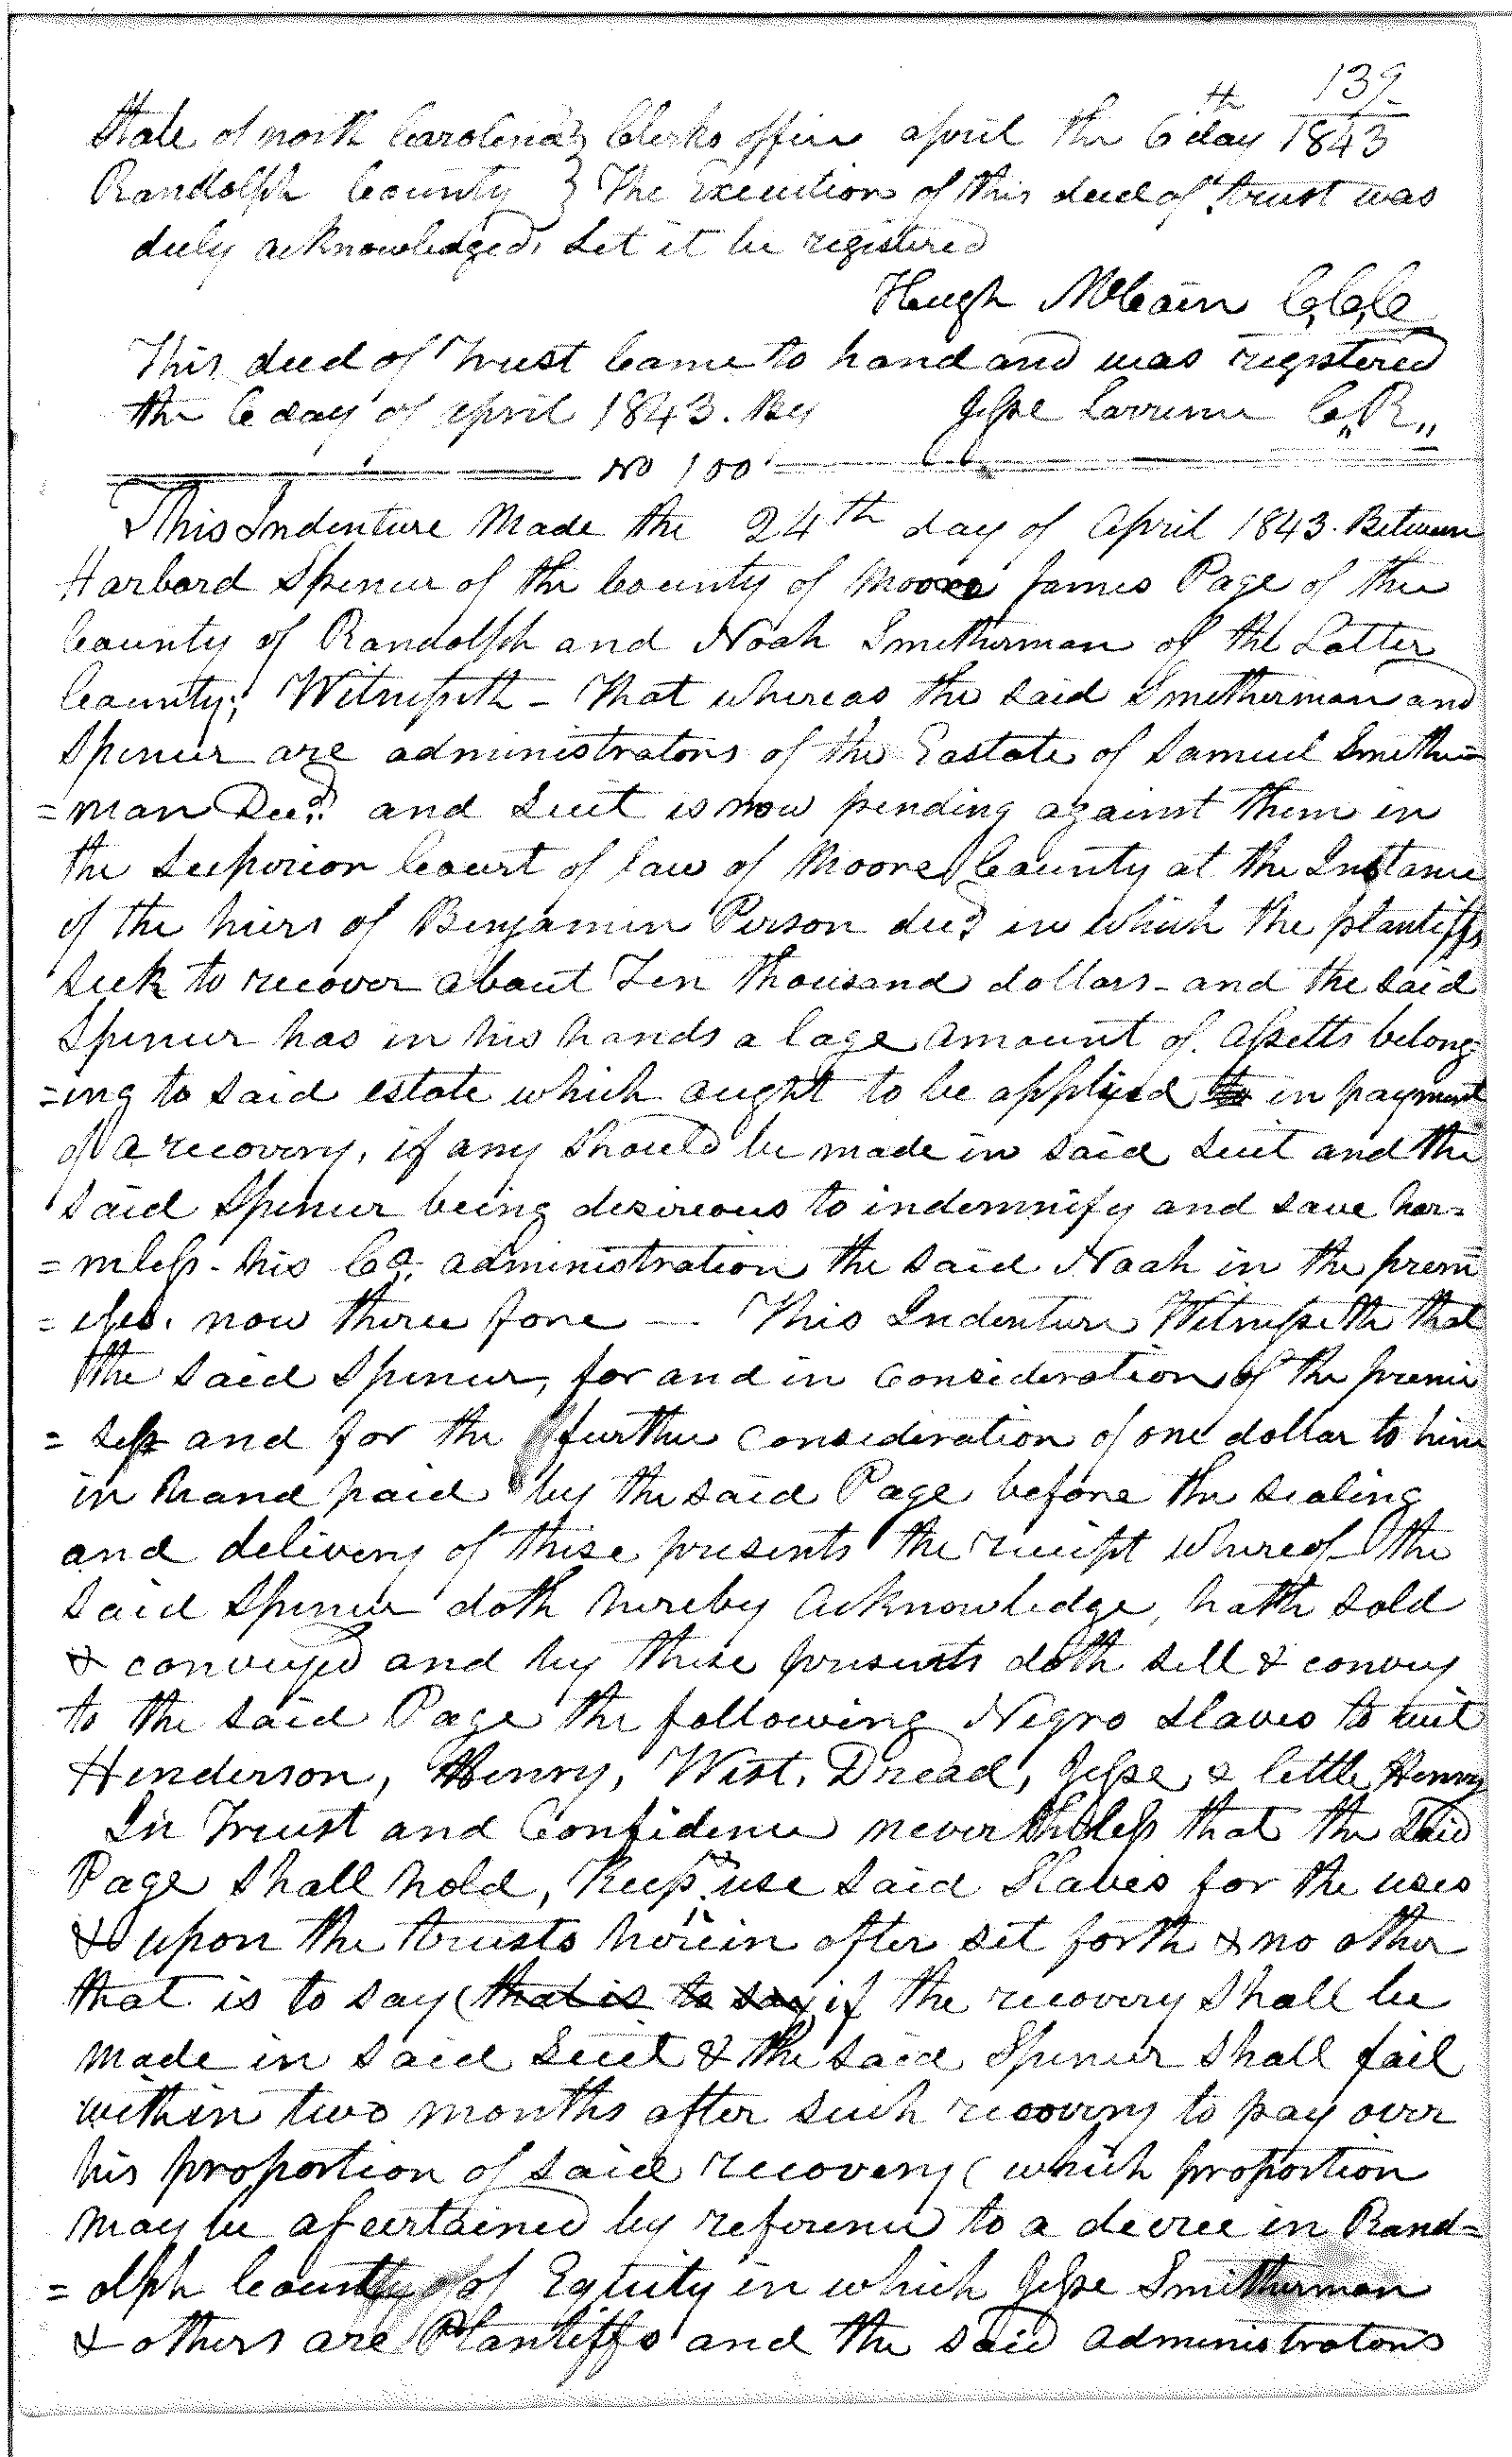 139
State of north Carolina } Clerks office april the 6th day 1843
Randolph County } The Execution of this deed of trust was
duly acknowledged, Let it be registered
Hugh McCain C,C,C
This deed of trust Came to hand and was registered
the 6 day of april 1843. By Jesse Larrence C,,R,,
No 100
This Indenture Made the 24th day of April 1843. Between
Harbord Spencer of the County of Moore James Page of the
County of Randolph and Noah Smitherman of the Latter
County; Witnesseth - That whereas the said Smitherman and
Spencer are administrators of the Eastate of Samuel Smither=
=man Decd. and Suit is now pending against them in
the Superior Court of law of Moore County at the Instance
of the heirs of Benjamin Person decd in which the plantiffs
seek to recover about Ten thousand dollars - and the said
Spencer has in his hands a lage amount of Assetts belong=
=ing to said estate which ought to be applyed to in payment
of a recovery, if any should be made in said suit and the
said Spencer being desireous to indemnify and save har=
=mless - his Co. administration the said Noah in the premi
=eses. now there fore — This Indenture Witnesseth that
the said Spencer, for and in Consideration of the premi
=sess and for the further Consideration of one dollar to him
in hand paid by the said Page before the sealing
and delivery of these presents the receipt whereof the
said Spencer doth hereby acknowledge, hath sold
& conveyed and by these presents doth sell & convey
to the said Page the following Negro slaves to wit
Henderson, Henry, West, Dread, Jesse, & little Henry
In Trust and Confidence never theless that the said
Page shall hold, keep & use said Slaves for the uses
& upon the trusts herein after set forth & no other
that is to say (that is to say, if the recovery shall be
made in said suit & the said Spencer shall fail
within two months after such recovery to pay over
his proportion of said recovery ( which proportion
may be assertained by reference to a decree in Rand=
=olph County of Equity in which Jesse Smitherman
& others are Plantiffs and the said administrators